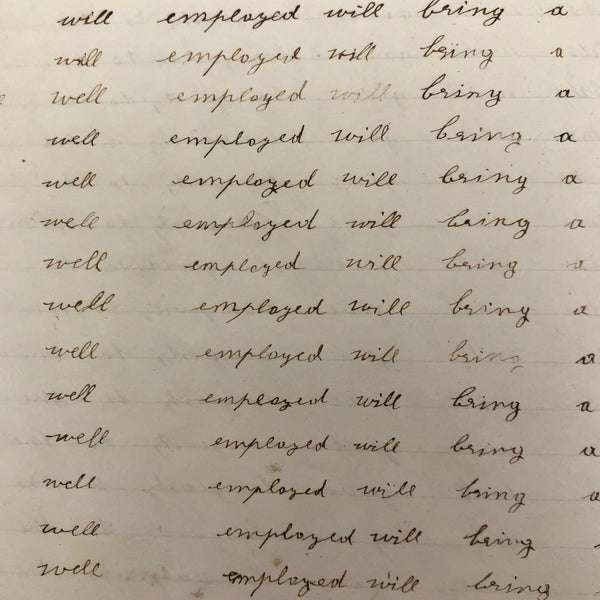 will employed will bring a
will employed will bring a
well employed will bring a
well employed will bring a
well employed will bring a
well employed will bring a
well employed will bring a
well employed will bring a
well employed will bring a
well employed will bring a
well employed will bring a
well employed will bring a
well employed will bring
well employed will bring